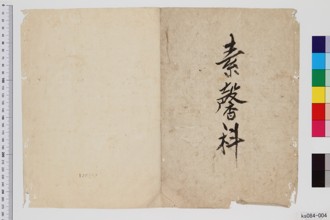 素馨科
ku084-004